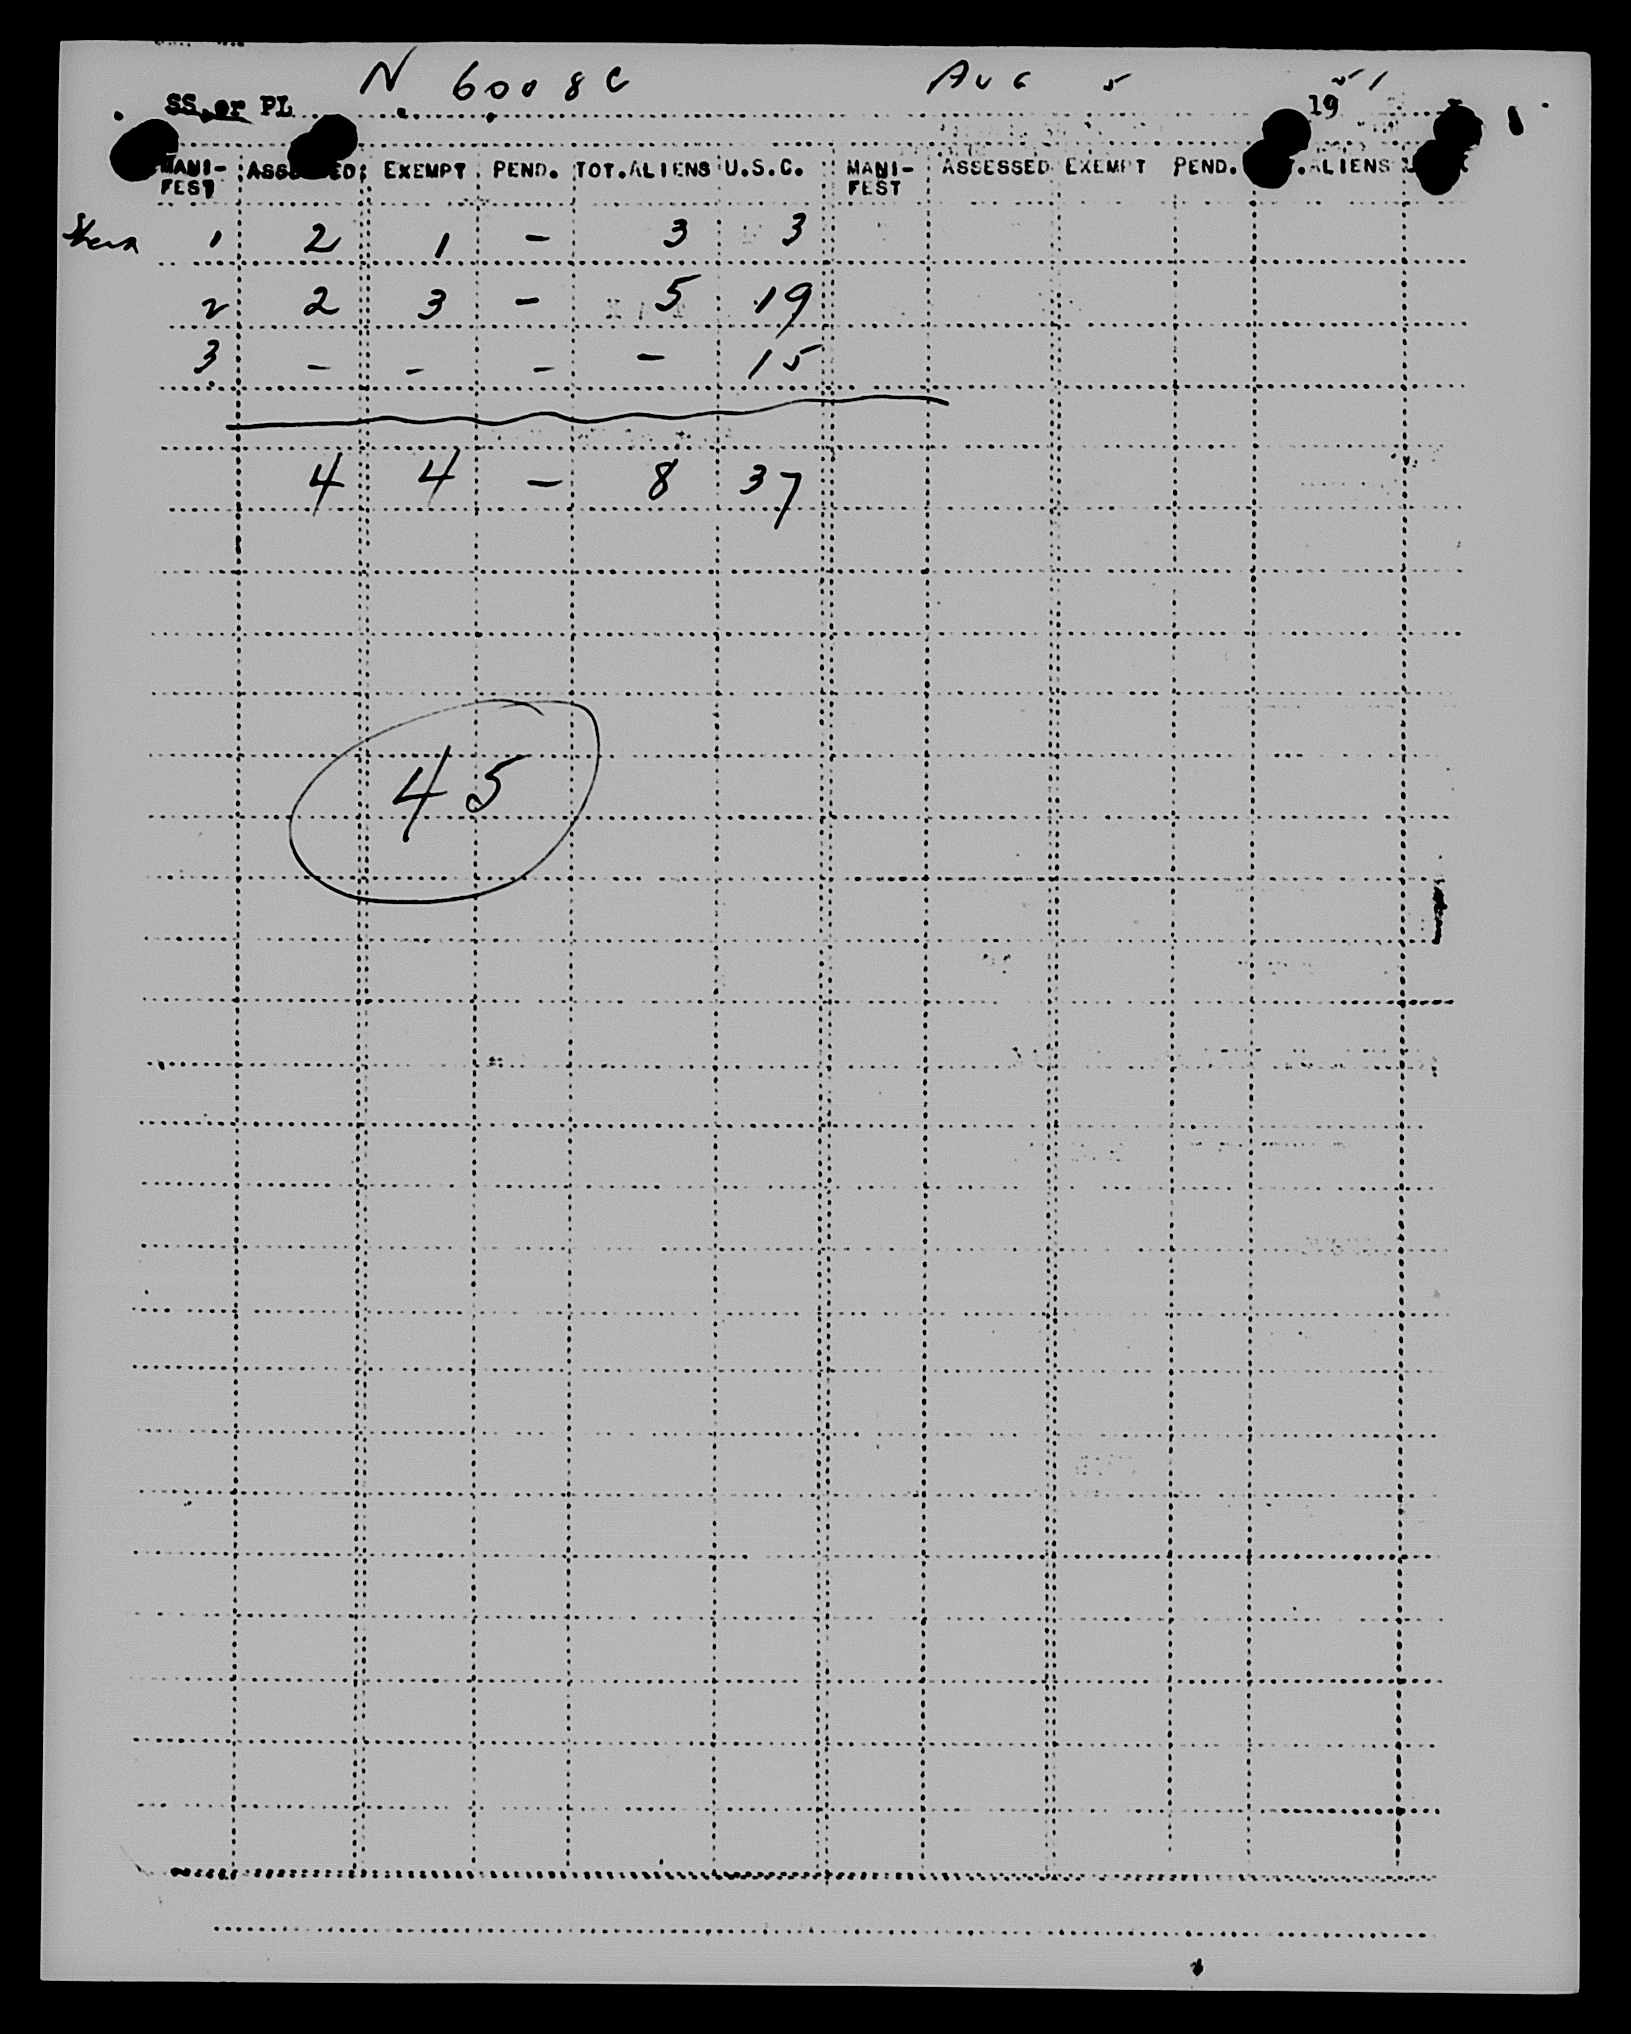 N 6008C Aug 5 51
SS. or PL 19
MANI-FEST ASSESSED EXEMPT PEND. TOT.ALIENS U.S.C. MANI-FEST ASSESSED EXEMPT PEND. T.ALIENS
1 2 1 - 3 3
2 2 3 - 5 19
3 - - - - 15
4 4 - 8 37
45